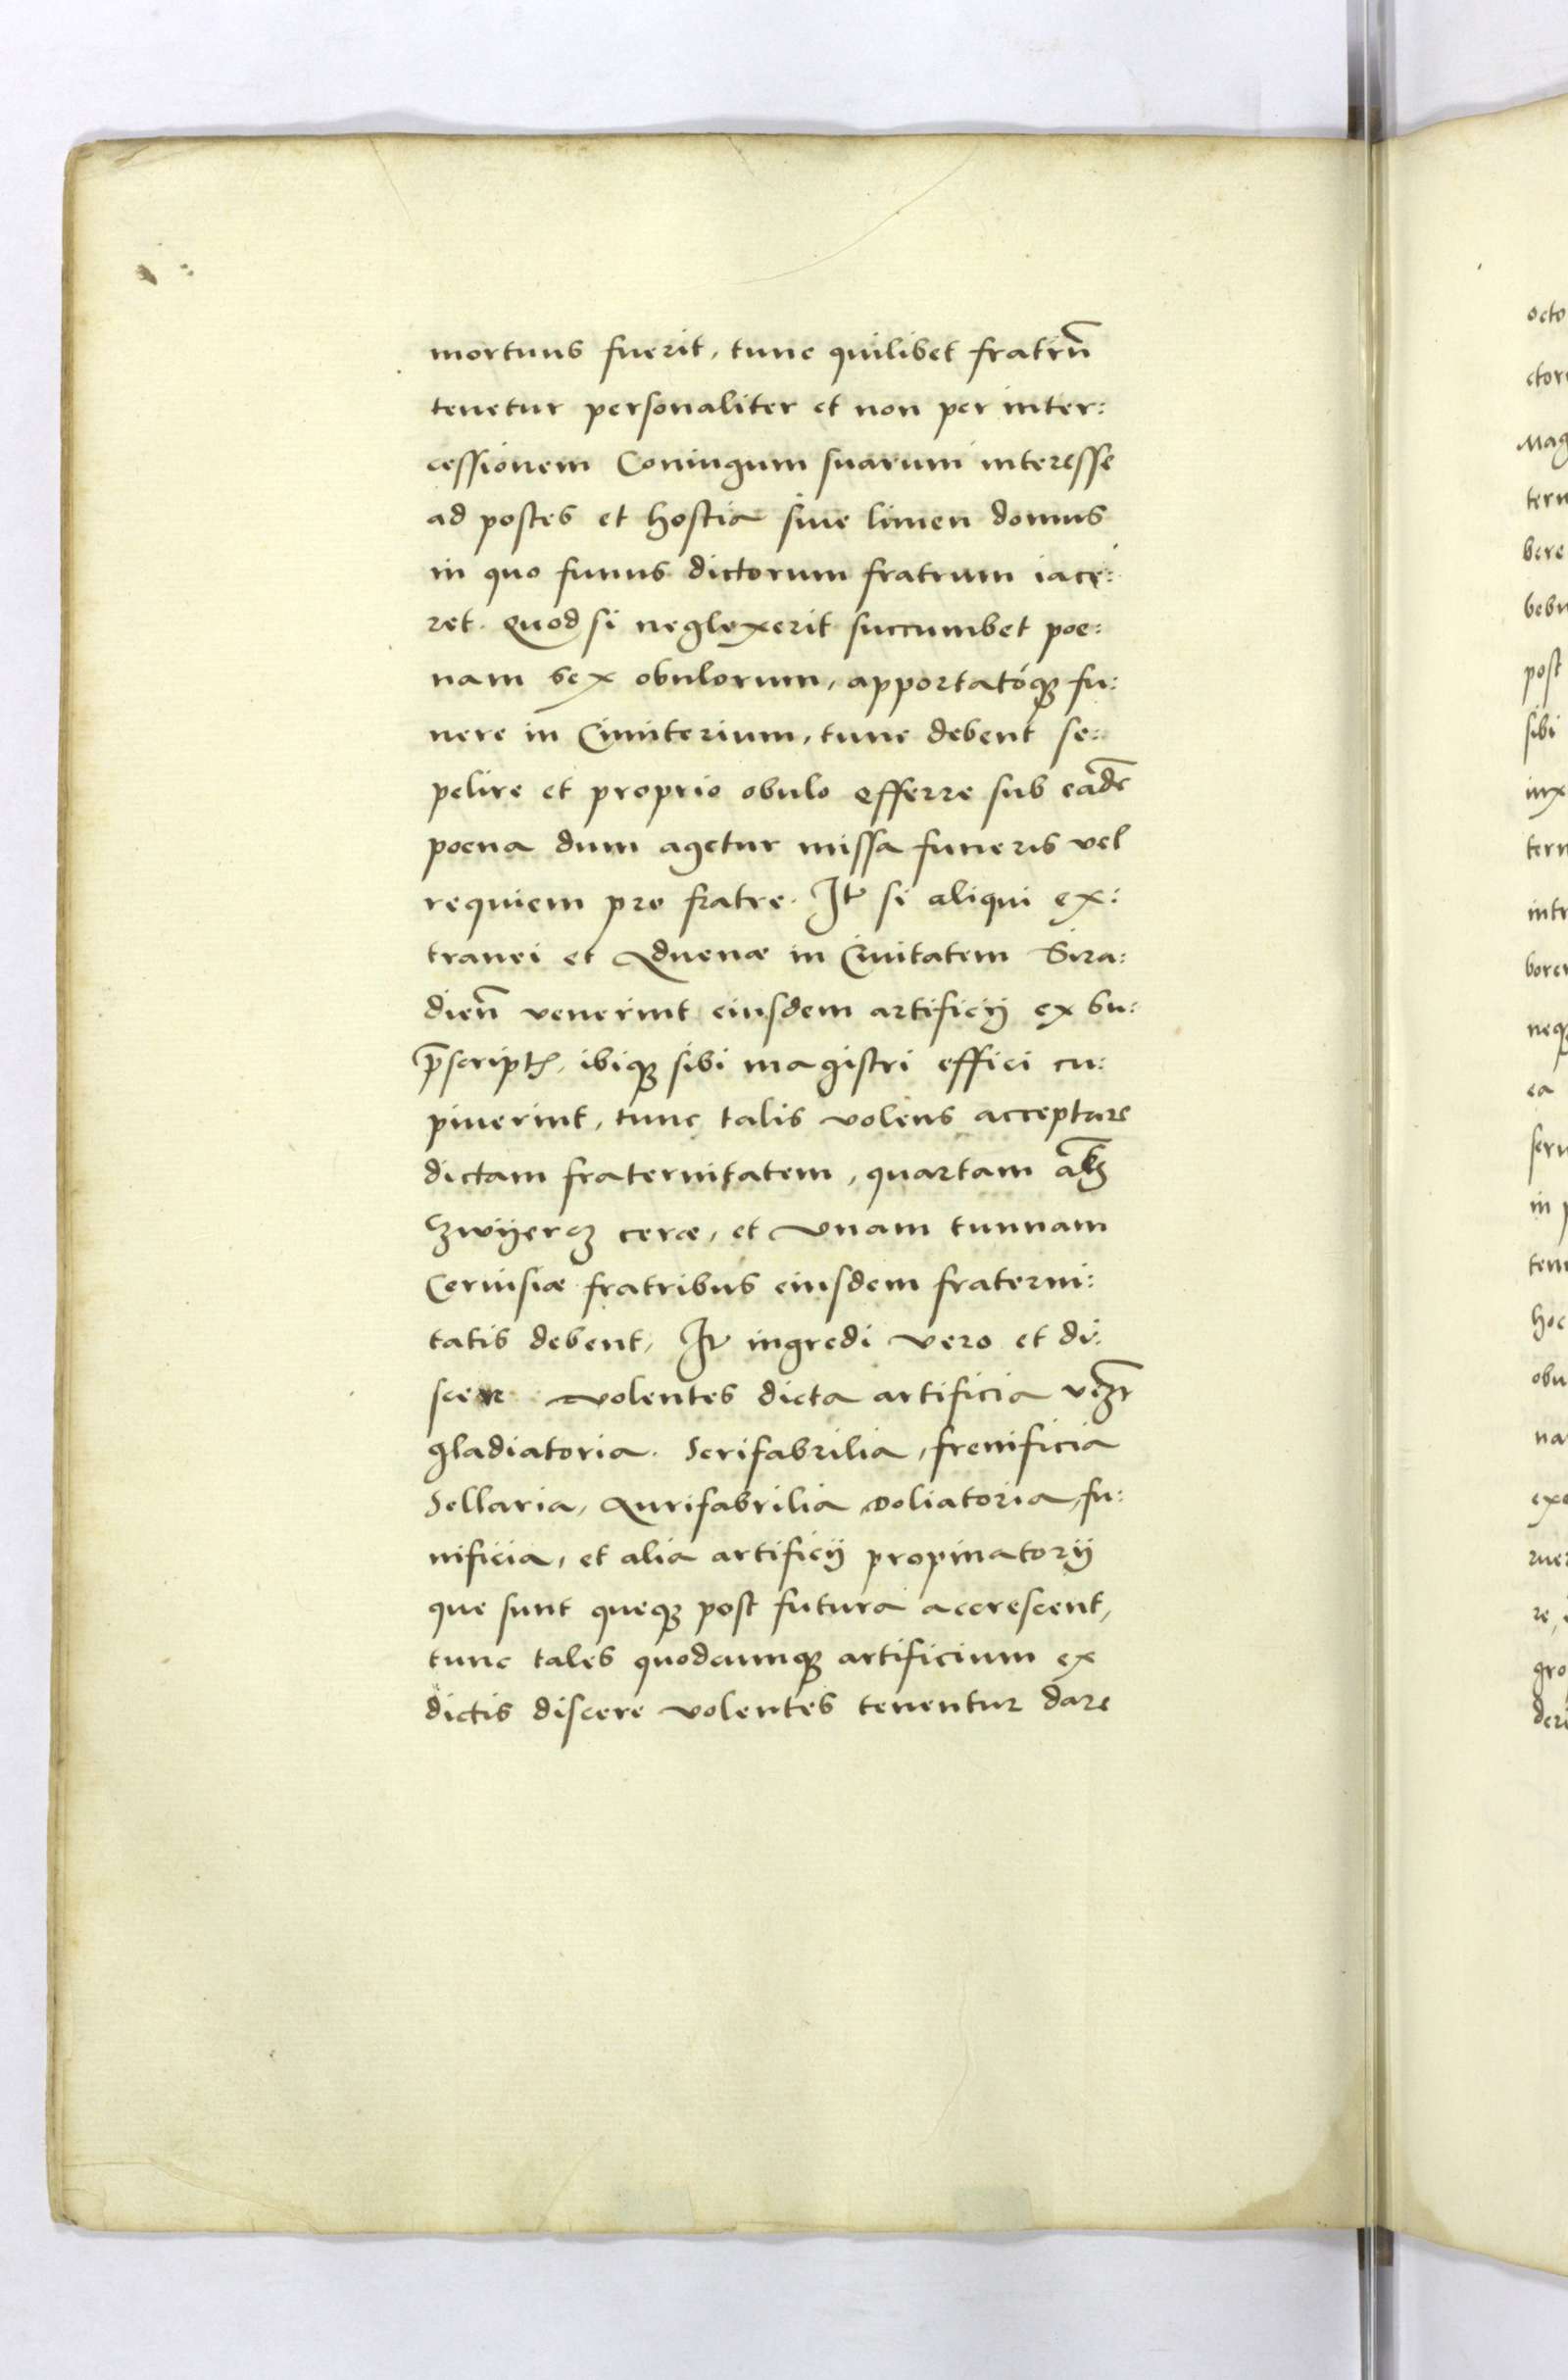 mortuus fuerit, tunc quilibet fratrũ
tenetur personaliter et non per inter:
cessionem Coniugum suarum interesse
ad postes et hostia siue limen domus
in quo funus dictorum fratrum iace:
ret. Quod si neglexerit succumbet poe:
nam sex obulorum, apportatóq₃ fu:
nere in Cimiterium, tunc debent se:
pelire et proprio obulo efferre sub eadē
poena dum agetur missa funeris vel
requiem pro fratre. It si aliqui ex:
tranei et Aduenæ in Ciuitatem Sira:
dien̄ venerint eiusdem artificij ex su:
p̄script, ibiq₃ sibi magistri effici cu:
piuerint, tunc talis volens acceptare
dictam fraternitatem, quartam
czwijercz ceræ, et vnam tunnam
Ceruisiæ fratribus eiusdem fraterni:
tatis debent, It ingredi vero et di:
scere volentes dicta artificia vcz̄t
gladiatoria. Serifabrilia, frenificia
Sellaria, Aurifabrilia, Doliatoria, fu:
nificia, et alia artificij propinatorij
que sunt queq₃ post futura accrescent,
tunc tales quodcumq₃ artificium ex
dictis discere volentes tenentur dare
octo
ctor
Mag
tern
bere
bebu
post
sibi
iux
tern
intr
borer
neq₃
ea
seru
in p
tem
hoc
obu
na
exe
re,
gro